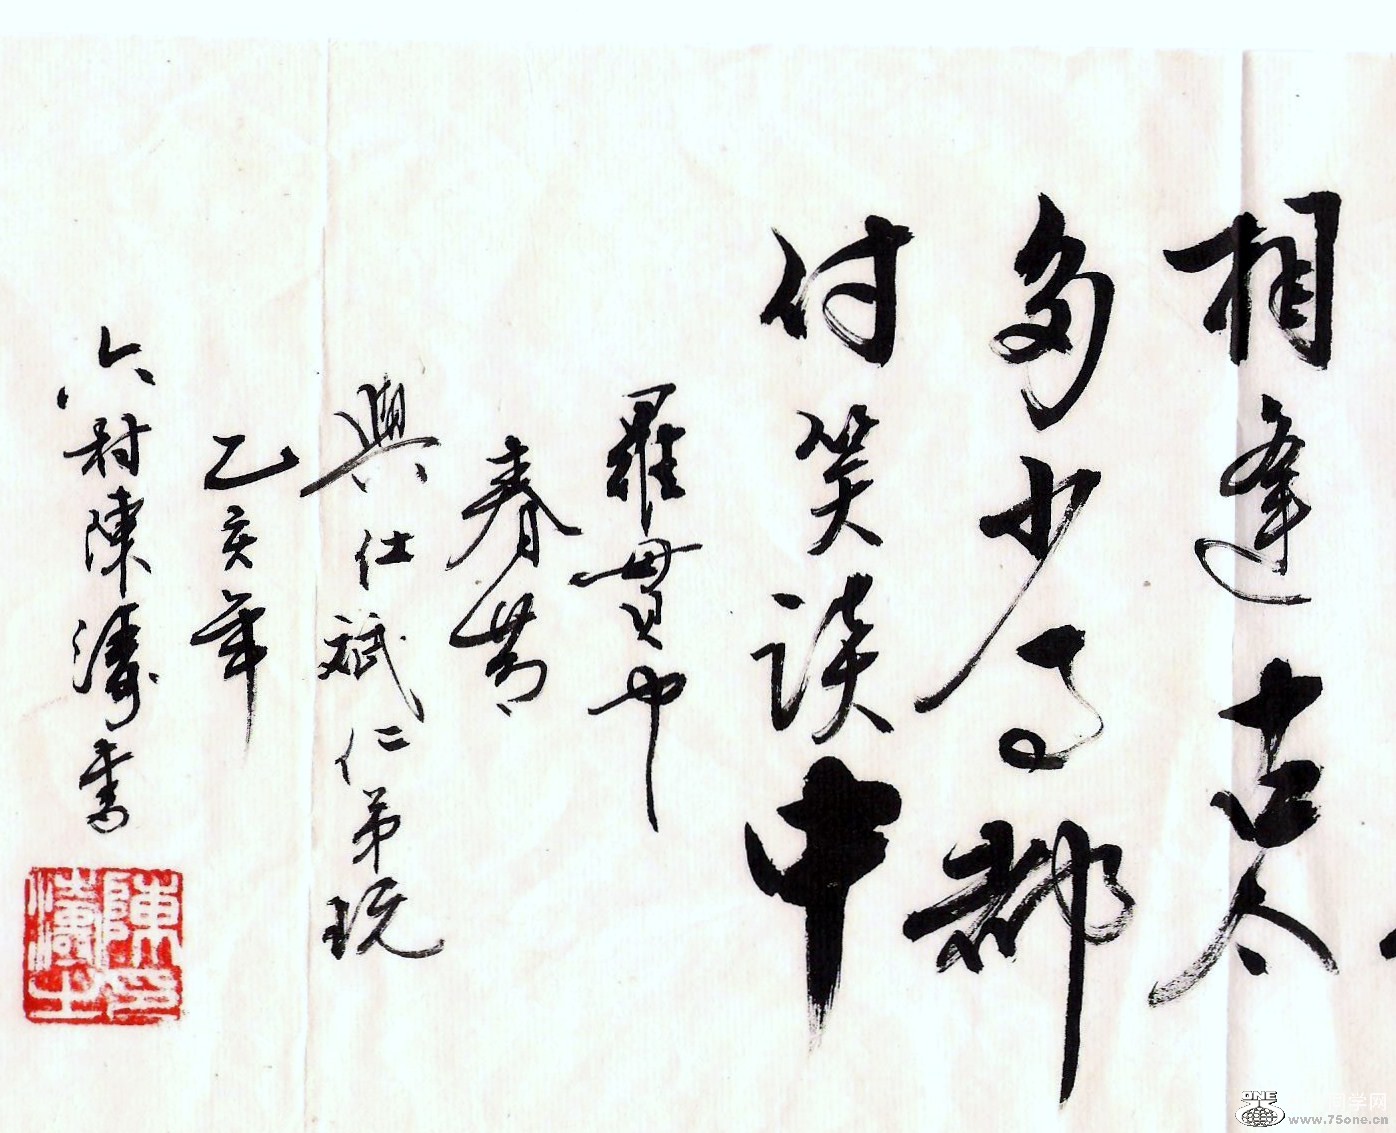 相逢古今
多少事都
付笑談中
羅貫中
春
與仕斌仁弟玩
乙亥年
六村陳濤書
陳印
ONE
同学网
www.75one.cn